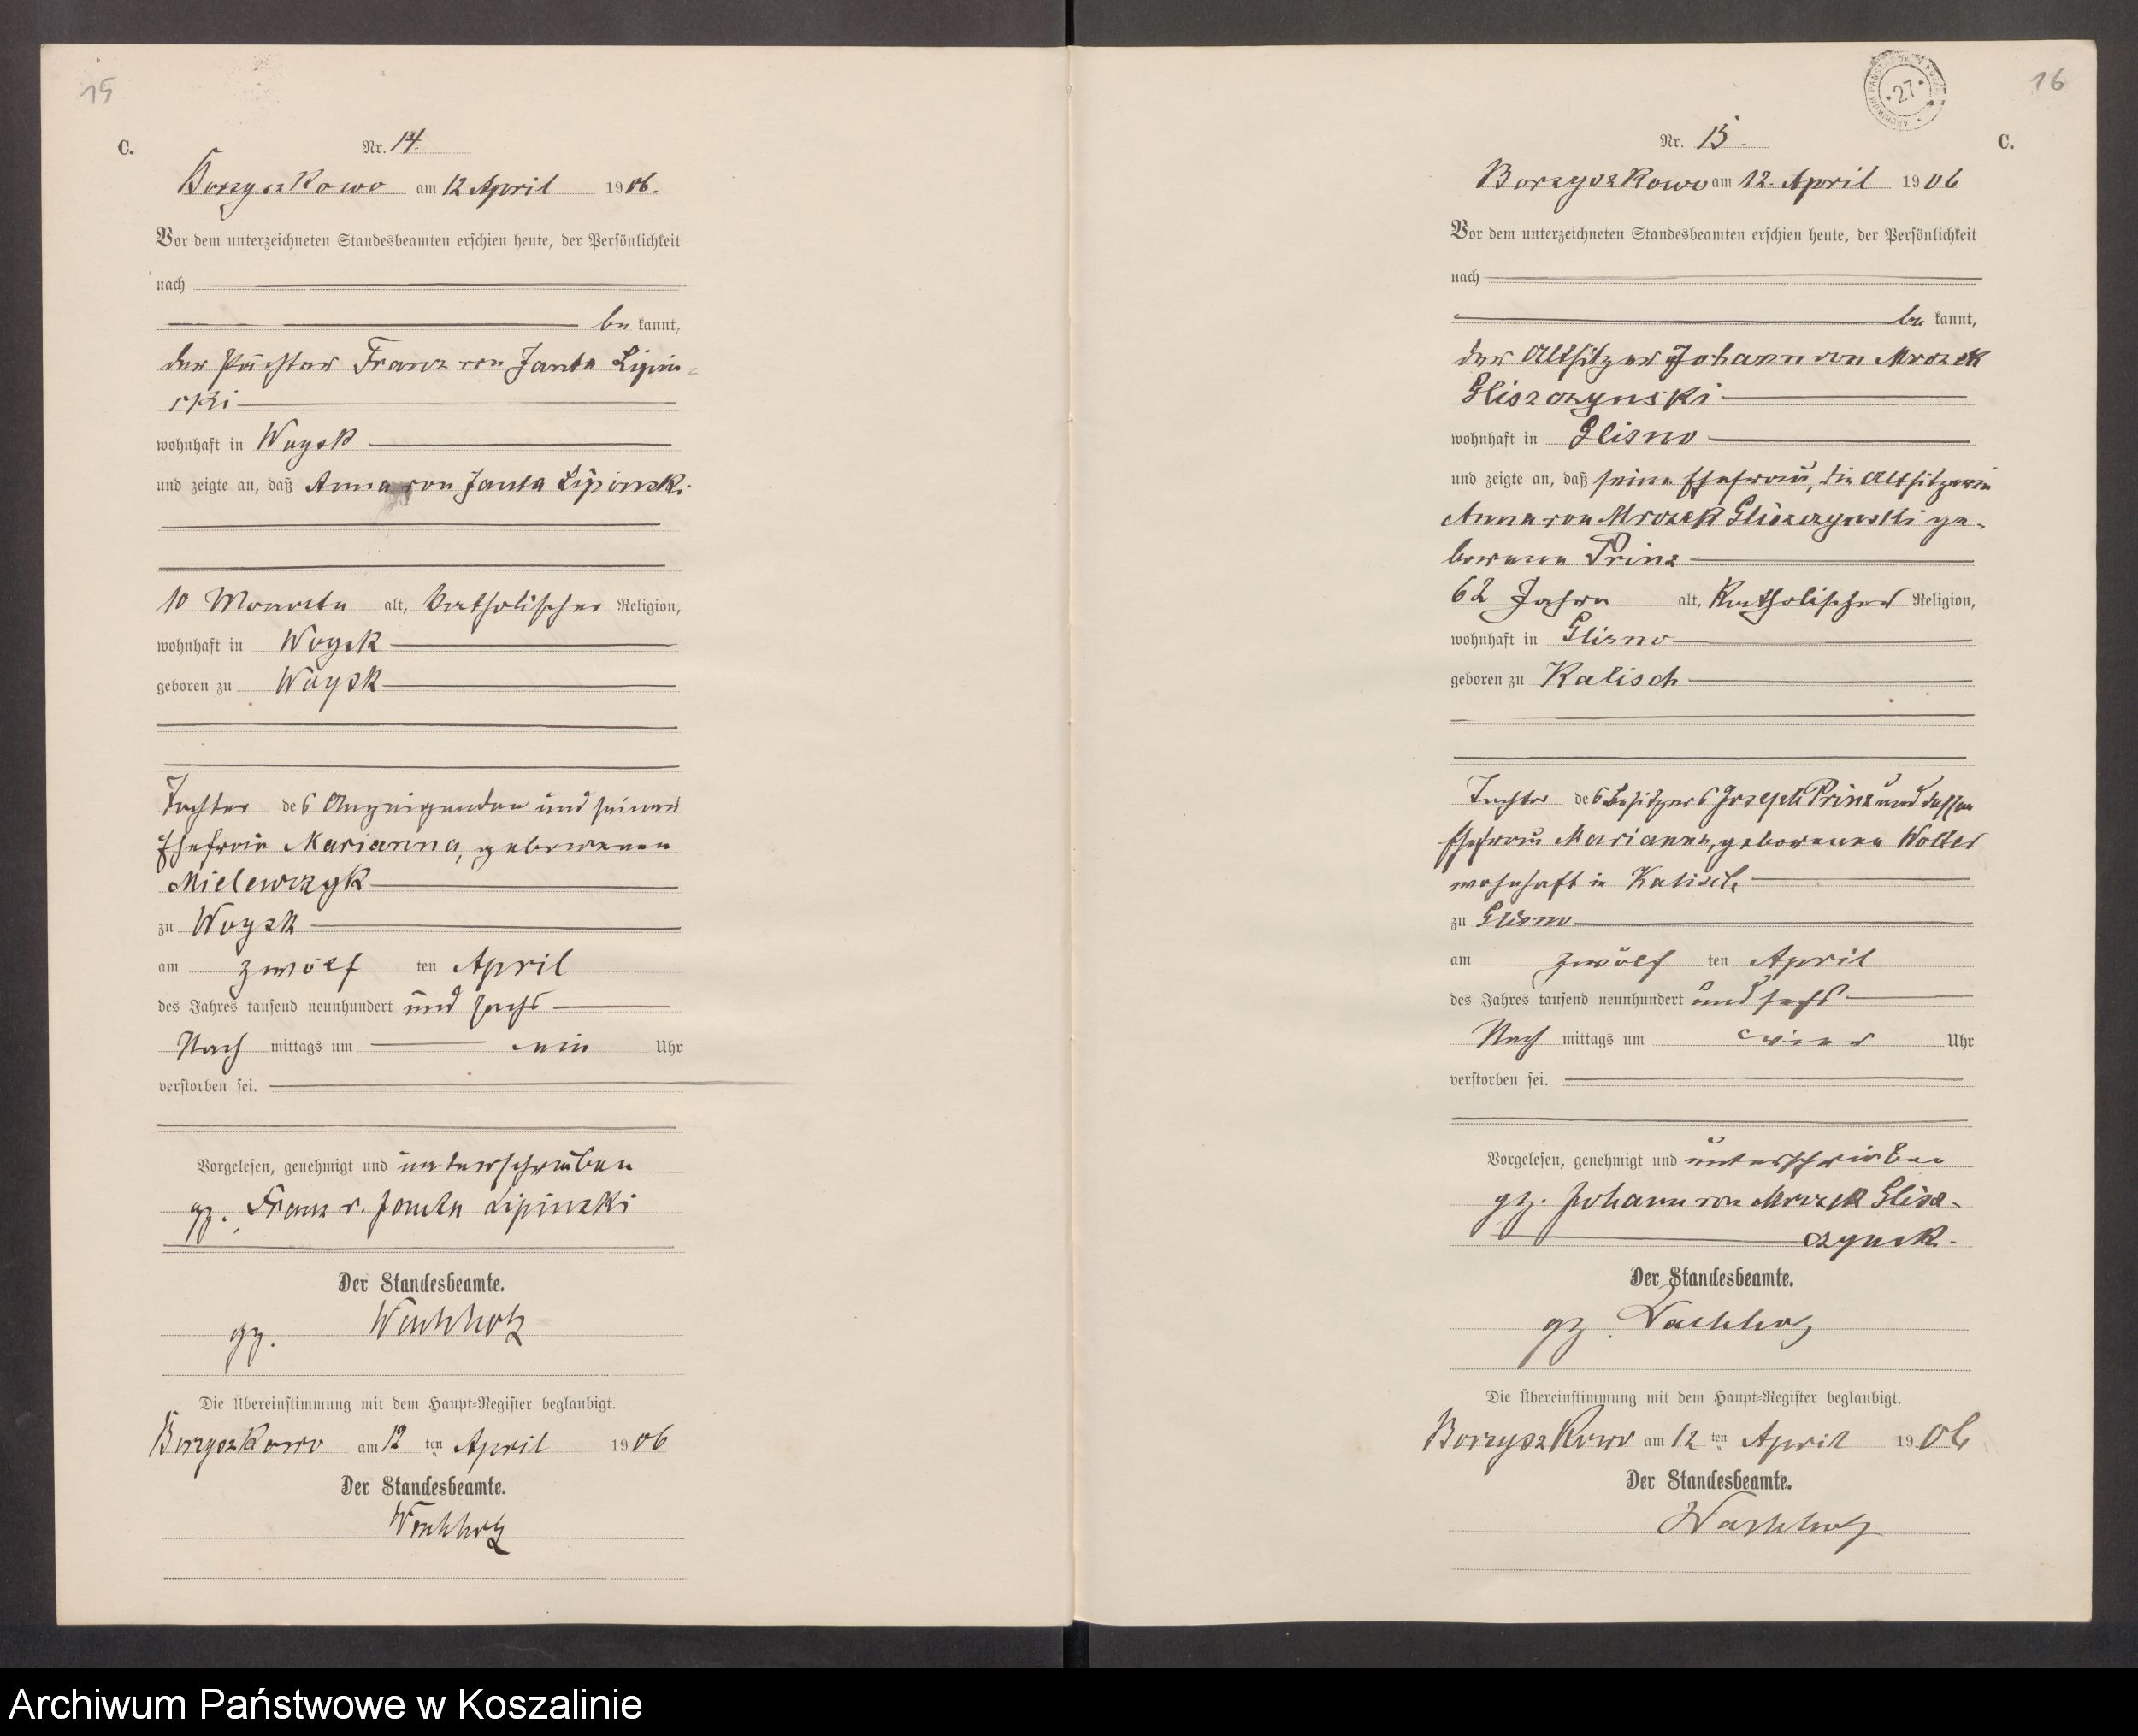 15
C.
Nr. 14.
Borzyszkowo am 12 April 1906.
Vor dem unterzeichneten Standesbeamten erschien heute, der Persönlichkeit
nach
be kannt,
der Pächter Franz von Janta Lipin=
ski
wohnhaft in Woysk
und zeigte an, daß Anna von Janta Lipinski
10 Monate alt, katholischer Religion,
wohnhaft in Woysk
geboren zu Woysk
Tochter des Anzeigenden und seiner
Ehefrau Marianna, geborenen
Mielewczyk
zu Woysk
am zwölf ten April
des Jahres tausend neunhundert und sechs
Nach mittags um ein Uhr
verstorben sei.
Vorgelesen, genehmigt und unterschrieben
gz. Franz v. Janta Lipinski
Der Standesbeamte.
gz. Wachholz
Die Übereinstimmung mit dem Haupt-Register beglaubigt.
Borzyszkowo am 12 ten April 1906
Der Standesbeamte.
Wachholz
16
ARCHIWUM PAŃSTWOWE
27
C.
Nr. 15.
Borzyszkowo am 12. April 1906
Vor dem unterzeichneten Standesbeamten erschien heute, der Persönlichkeit
nach
be kannt,
der Altsitzer Johann von Mrozek
Gliszczynski
wohnhaft in Glisno
und zeigte an, daß seine Ehefrau, die Altsitzerin
Anna von Mrozek Gliszczynski ge-
borene Prinz
62 Jahre alt, katholischer Religion,
wohnhaft in Glisno
geboren zu Kalisch
Tochter des Besitzers Joseph Prinz und dessen
Ehefrau Marianna, geborenen Wolter
wohnhaft in Kalisch
zu Glisno
am zwölf ten April
des Jahres tausend neunhundert und sechs
Nach mittags um vier Uhr
verstorben sei.
Vorgelesen, genehmigt und unterschrieben
gz. Johann von Mrozek Glisz-
czynsk.
Der Standesbeamte.
gz. Wachholz
Die Übereinstimmung mit dem Haupt-Register beglaubigt.
Borzyszkowo am 12 ten April 1906
Der Standesbeamte.
Wachholz
Archiwum Państwowe w Koszalinie